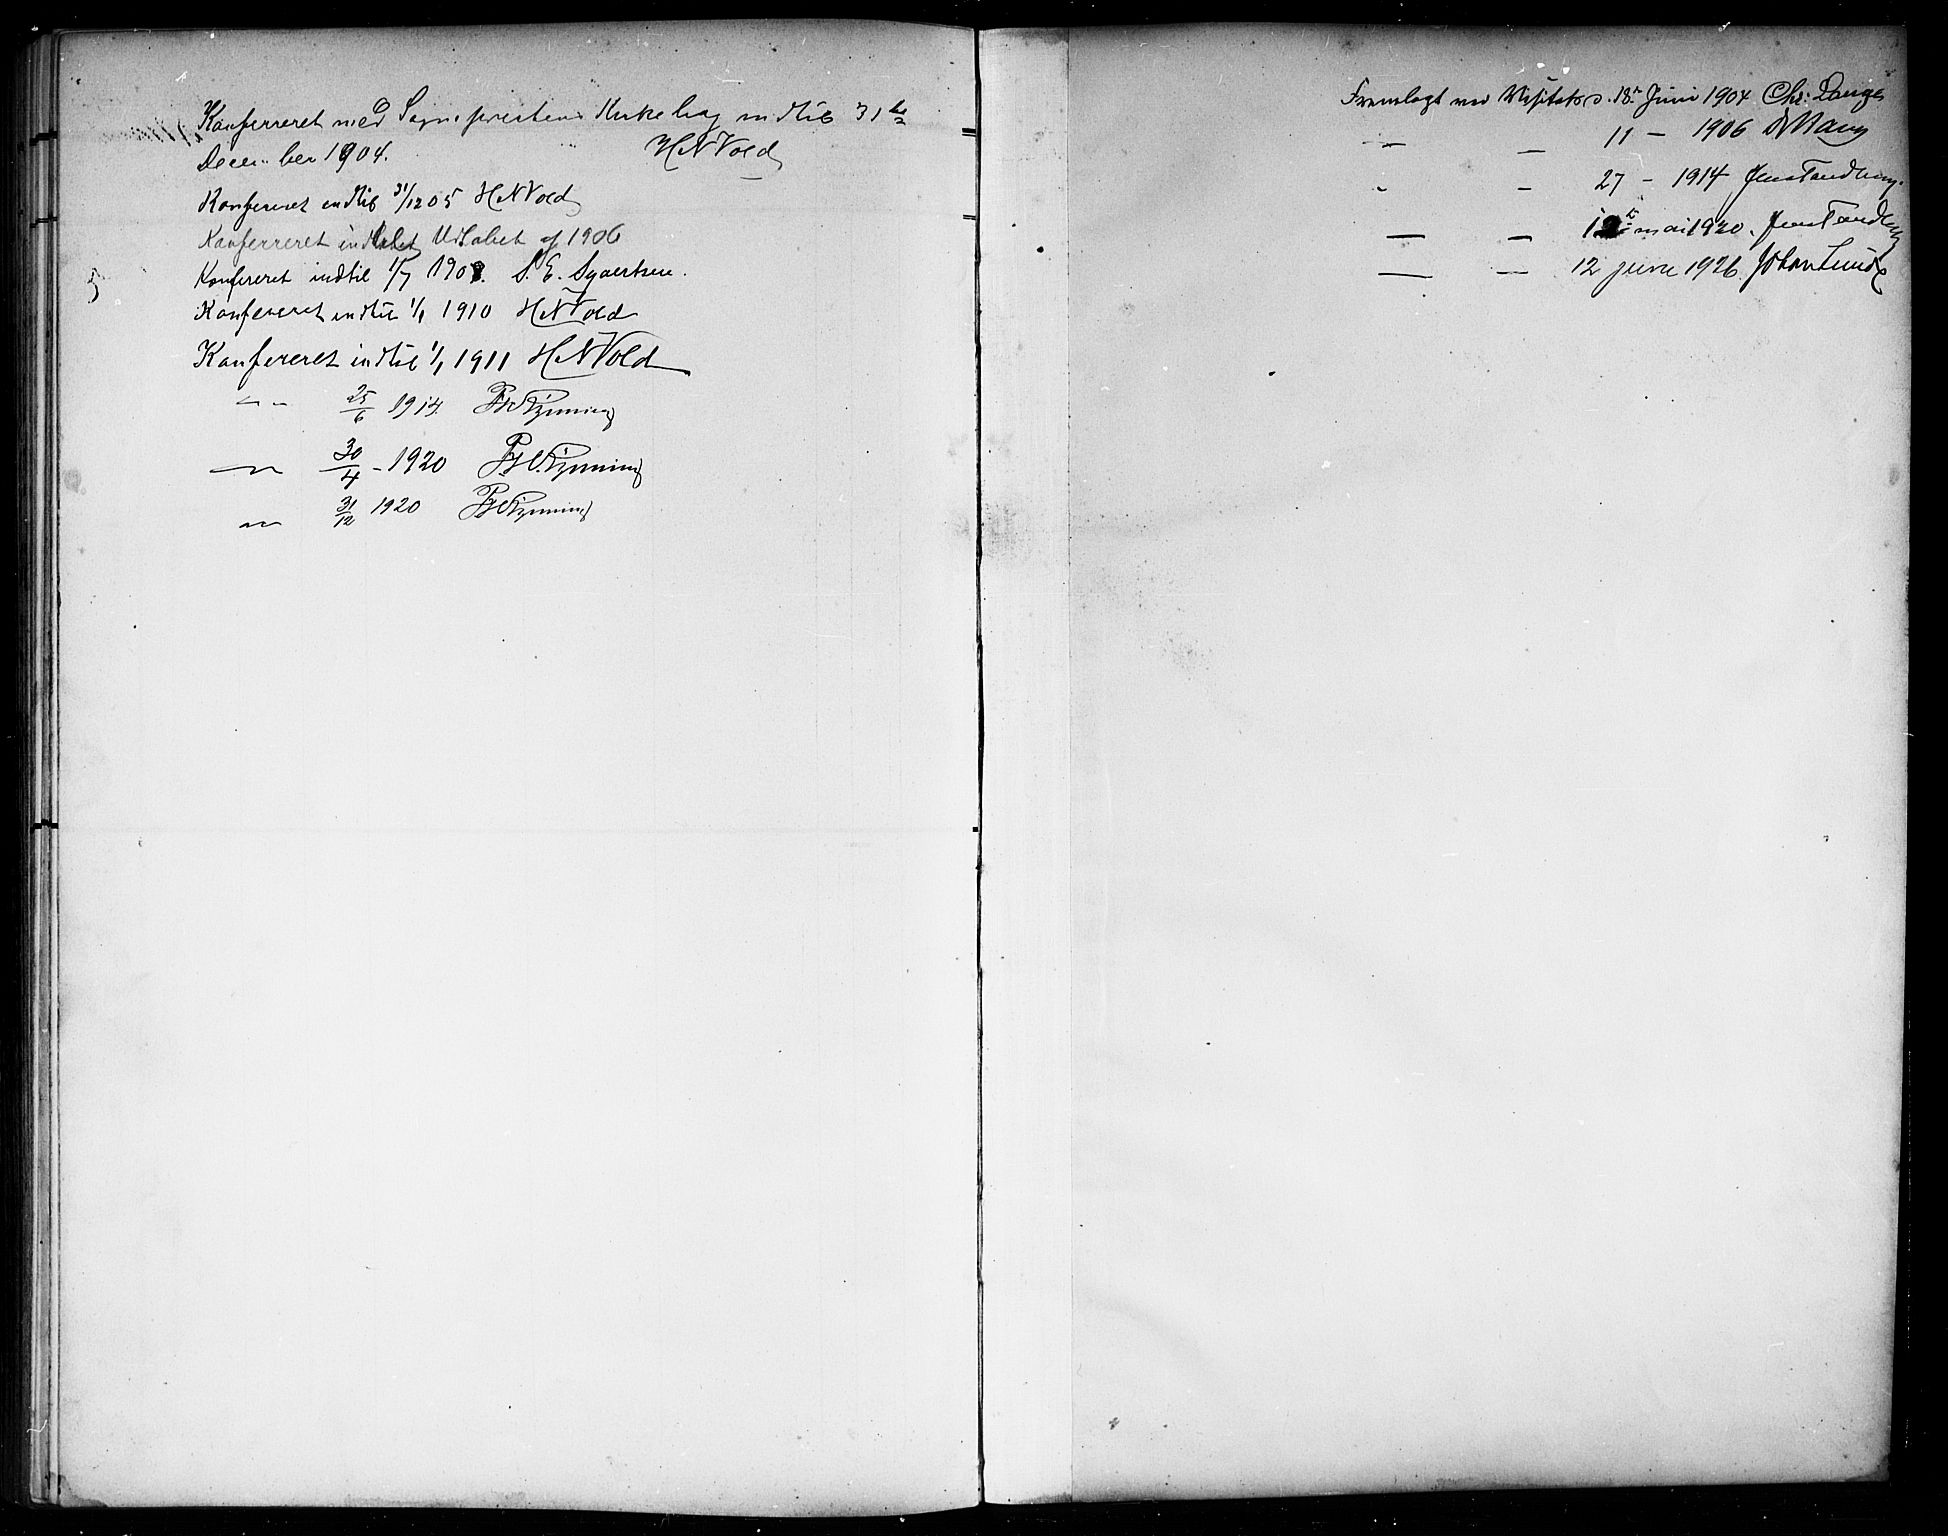 Konferreret med Sognepræstens Kirkebog indtil 31te
December 1904. H N Vold
Konfereret indtil 31/12 05 H N Vold
Konferreret indtil Udløbet af 1906
Konfereret indtil 1/7 1908. S. E. Syvertsen.
Konfereret indtil 1/1 1910 H N Vold
Konfereret indtil 1/1 1911 H N Vold
— " — 25/6 1914
— " — 30/4 - 1920
— " — 31/12 1920
5
Fremlagt ved Visitats d. 18. Juni 1904 Chr. Lange
— — 11 — 1906
" — 27 — 1914 Jens Tandberg.
— — 12te mai 1920. Jens Tandberg
— — 12 june 1926. Johan Lunde